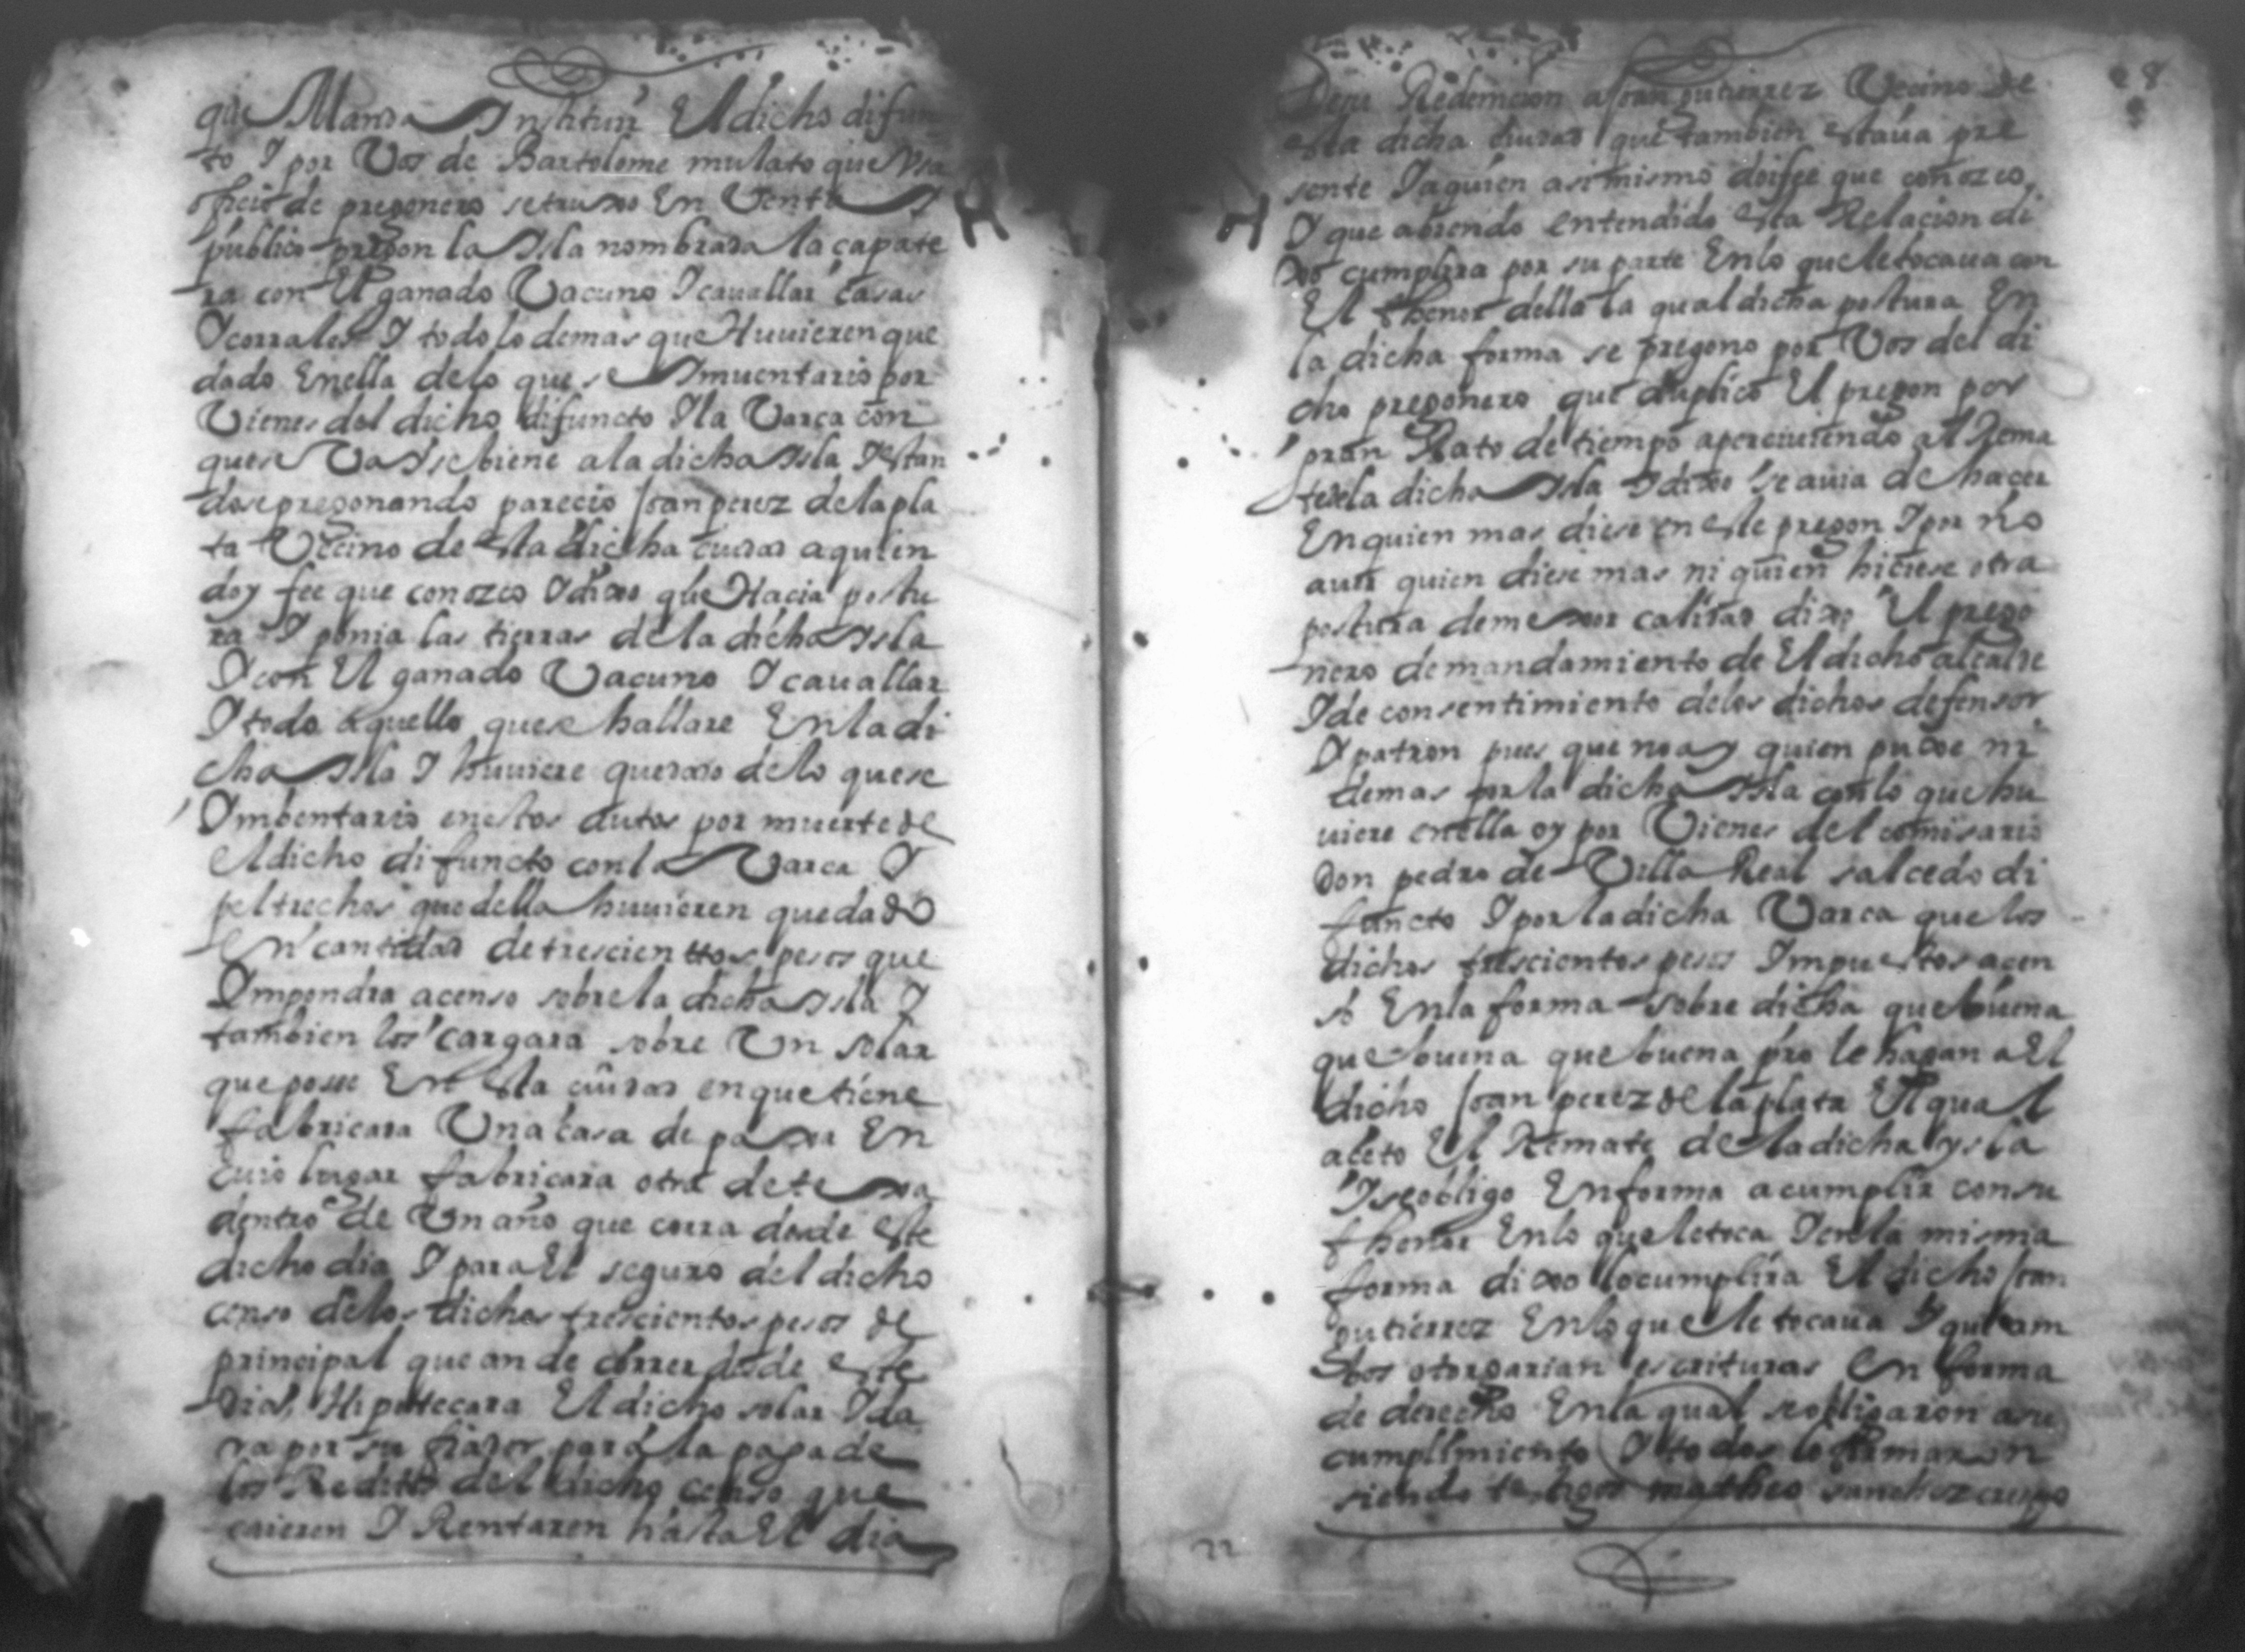 que Manda Instituir El dicho difun
to I por Vos de Bartolome mulato que Vsa
oficio de pregonero se truxo En Venta I
publico pregon la Isla nombrada la çapate
ra con El ganado Vacuno I cauallar casas
I corrales I todo lo demas que Huuieren que
dado En ella de lo que se Imuentario por
Vienes del dicho difuncto I la Varca con
que se Va I se biene a la dicha Isla I estan
dose pregonando parecio Joan perez de la pla
ta Vecino de Esta dicha ciudad a quien
doy fee que conozco I dixo que Hacia postu
ra I ponia las tierras de la dicha Isla
I con El ganado Vacuno I cauallar
I todo aquello que se hallare En la di
cha Isla I huuiere quedado de lo que se
Imbentario en estos autos por muerte de
El dicho difuncto con la Varca I
peltrechos que della huuieren quedado
En cantidad de trescienttos pesos que
Impondra a censo sobre la dicha Isla I
tambien los cargara sobre Un solar
que posee En Esta ciudad en que tiene
fabricada Una casa de paxa En
cuio lugar fabricara otra de texa
dentro de Un año que corra desde Este
dicho dia I para El seguro del dicho
censo de los dichos trescientos pesos de
principal que an de correr desde este
dia, Hipotecara El dicho solar I da
ra por su fiador para la paga de
los Reditos del dicho censo que
caieren I Rentaren hasta El dia
28
De su Redemcion a Joan gutierrez Vecino de
esta dicha ciudad que tambien estaua pre
sente I a quien asi mismo doi fee que conozco
I que abiendo entendido esta Relacion di
xo cumplira por su parte En lo que le tocaua con
El thenor della la qual dicha postura En
la dicha forma se pregono por Vos del di
cho pregonero que duplico El pregon por
gran Rato de tiempo aperciuiendo al Rema
te de la dicha Isla I dixo se auia de hacer
En quien mas diese en este pregon I por no
auer quien diese mas ni quien hiciese otra
postura de mexor calidad dixo El prego
nero de mandamiento de El dicho alcalde
I de consentimiento de los dichos defensor
I patron pues que no ay quien puxe ni
de mas por la dicha Isla con lo que hu
uiere en ella oy por Vienes del comisario
Don pedro de Villa Real salcedo di
functo I por la dicha Varca que los
dichos trescientos pesos Impuestos a cen
so En la forma sobre dicha que buena
que buena que buena pro le hagan a El
dicho Joan perez de la plata El qual
aceto El Remate de la dicha ysla
I se obligo En forma a cumplir con su
thenor En lo que le toca I en la misma
forma dixo lo cumplira El dicho Joan
gutierrez En lo que le tocaua I que am
bos otorgarian escrituras En forma
de derecho En la qual se obligaron a su
cumplimiento I todos lo firmaron
siendo testigos matheo sanchez crespo
22